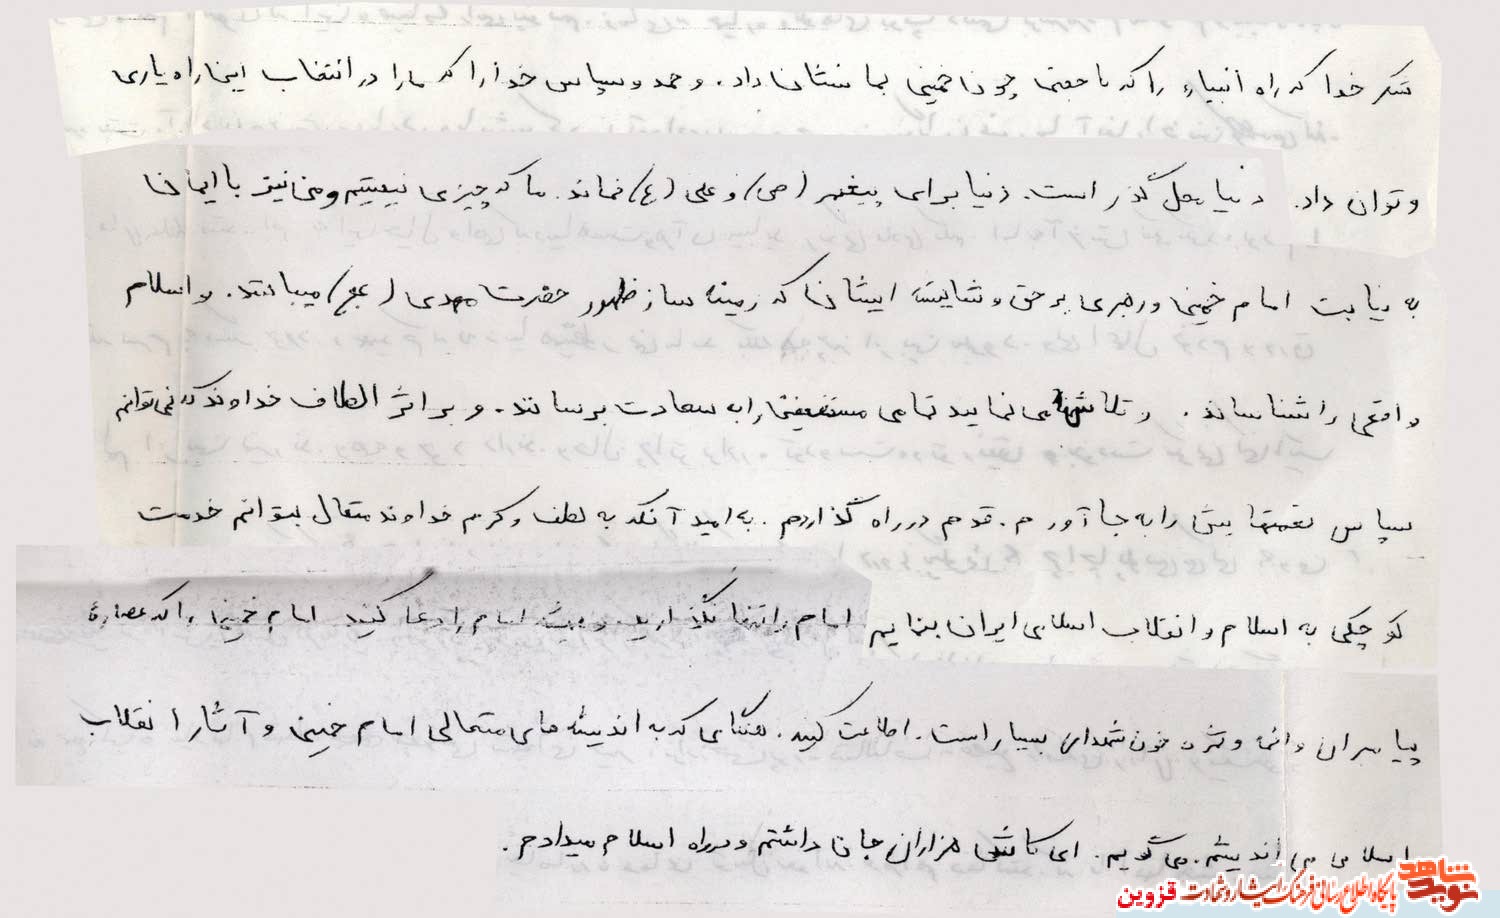 شکر خدا که راه انبیاء را که با حجتی چون خمینی بما نشان داد. و حمد و سپاس خدا را که ما را در انتخاب این راه یاری
و توان داد. دنیا محل گذر است. دنیا برای پیغمبر (ص) و علی (ع) نماند. ما که چیزی نیستیم و من نیز با ایمان
به نیابت امام خمینی و رهبری بر حق و شایسته ایشان که زمینه ساز ظهور حضرت مهدی (عج) میباشد. و اسلام
واقعی را شناساند. و تلاش می نماید تمامی مستضعفین را به سعادت برسانند. و بر اثر الطاف خداوند که نمی توانم
سپاس نعمتهایش را به جا آورم. قدم در راه گذاردم. به امید آنکه به لطف و کرم خداوند متعال بتوانم خدمت
کوچکی به اسلام و انقلاب اسلامی ایران بنمایم امام را تنها نگذارید. و همیشه امام را دعا کنید امام خمینی را که عصارهٔ
پیامبران و ائمه و ثمره خون شهدای بسیار است. اطاعت کنید. هنگامی که به اندیشه های متعالی امام خمینی و آثار انقلاب
اسلامی می اندیشم. می گویم. ای کاش هزاران جان داشتم و در راه اسلام میدادم.
نوید شاهد
پایگاه اطلاع رسانی فرهنگ ایثار و شهادت قزوین